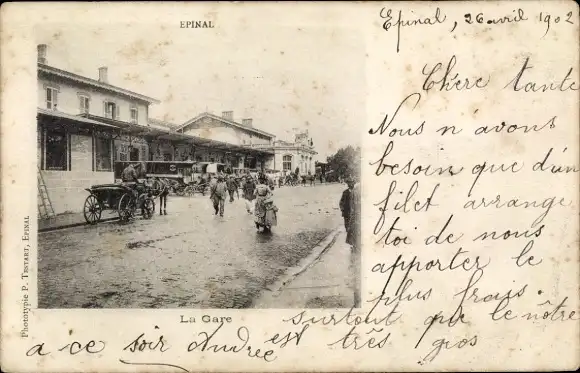 EPINAL
Epinal, 26 avril 1902
Chère tante
Nous n avons
besoin que d'un
filet arrange
toi de nous
apporter le
plus frais.
surtout que le nôtre
est très gros
a ce soir Andrée
La Gare
Phototypie P. Testart, Epinal